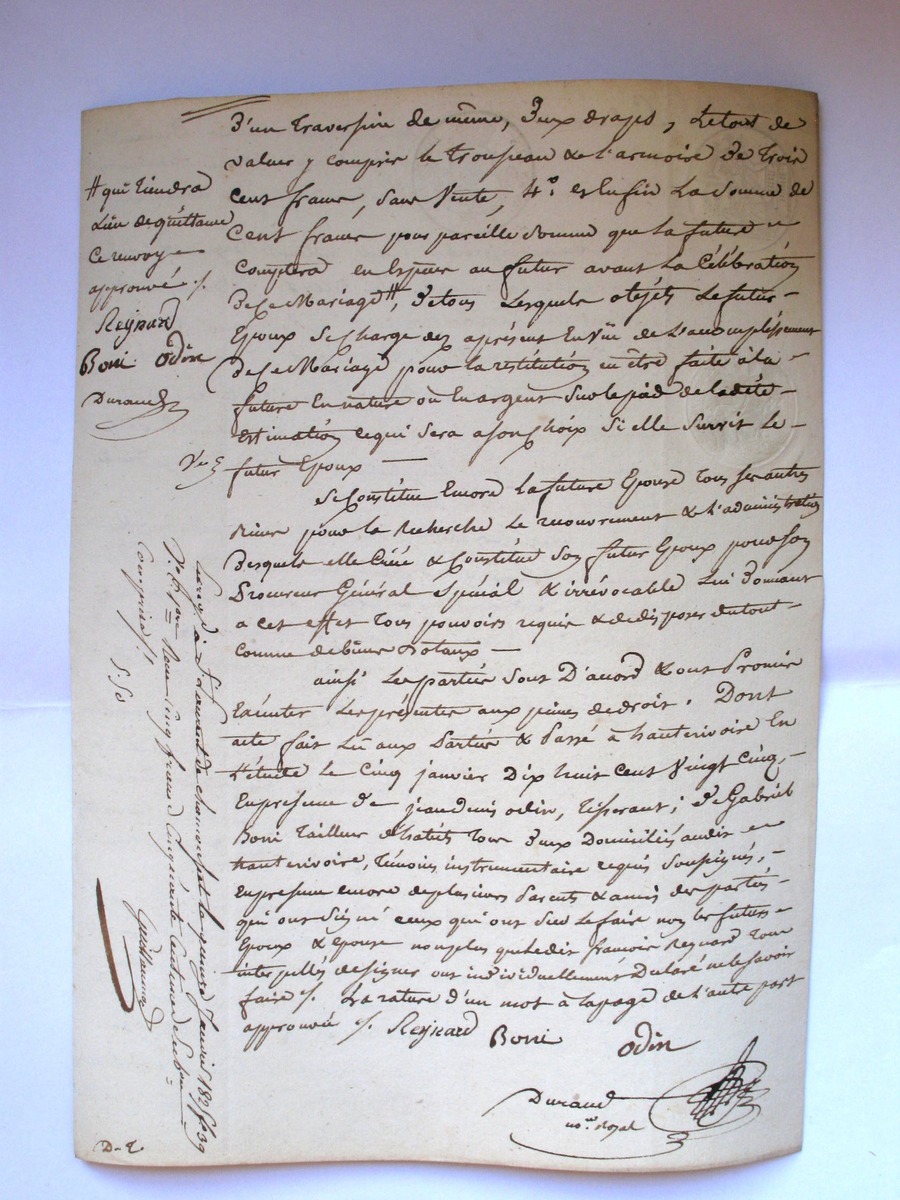 d'un traversin de même, deux draps, le tout de
valeur y compris le trousseau & l'armoire de trois
cent francs, sans vente, 4.° et enfin la somme de
cent francs pour pareille somme que la future
comptera en espèces au futur avant la célébration
de ce mariage #, de tous lesquels objets le futur
Epoux se charge dez aprésent en vüe de l'accomplissement
de ce mariage pour la restitution en être faite à la
future en nature ou en argent sur le pied de la dite
estimation ce qui sera a son choix si elle survit le
futur Epoux —
se Constitue encore la future Epouse tous ses autres
biens pour la recherche le recouvrement & l'administration
desquels elle Créé & Constitue son futur Epoux pour son
Procureur Général spécial & irrévocable lui donnant
a cet effet tous pouvoirs requis & de disposer du tout
comme de biens dotaux —
ainsi les parties sont d'accord & ont promis
exécuter les présentes aux peines de droit. Dont
acte fait lû aux parties & passé à hauterivoire en
l'étude le cinq janvier dix huit cent vingt cinq,
en présence de jean denis odin, tisserant; de Gabriel
Boni tailleur d'habits tous deux domiciliés audit
hauterivoire, témoins instrumentaire requis soussignés,
en présence encore de plusieurs parents & amis des parties
qui ont signé ceux qui ont sçu le faire non les futurs
Epoux & épouse non plus que ledit françois Reynard tous
interpellés de signer ont individuellement déclaré ne le savoir
faire ./. La rature d'un mot à la page de l'autre part
approuvée ./. Reynard Boni odin
Durand
no.re Royal
# qui tiendra
Lieu de quittance
ce renvoy
approuvé ./.
Reynard
Boni odin
Durand
Enreg.é à S.t Laurent de chamousset le quinze Janvier 1825 f.° 39
Reçu cinq francs cinquante centimes
compris ./.
Guillaume
D-2